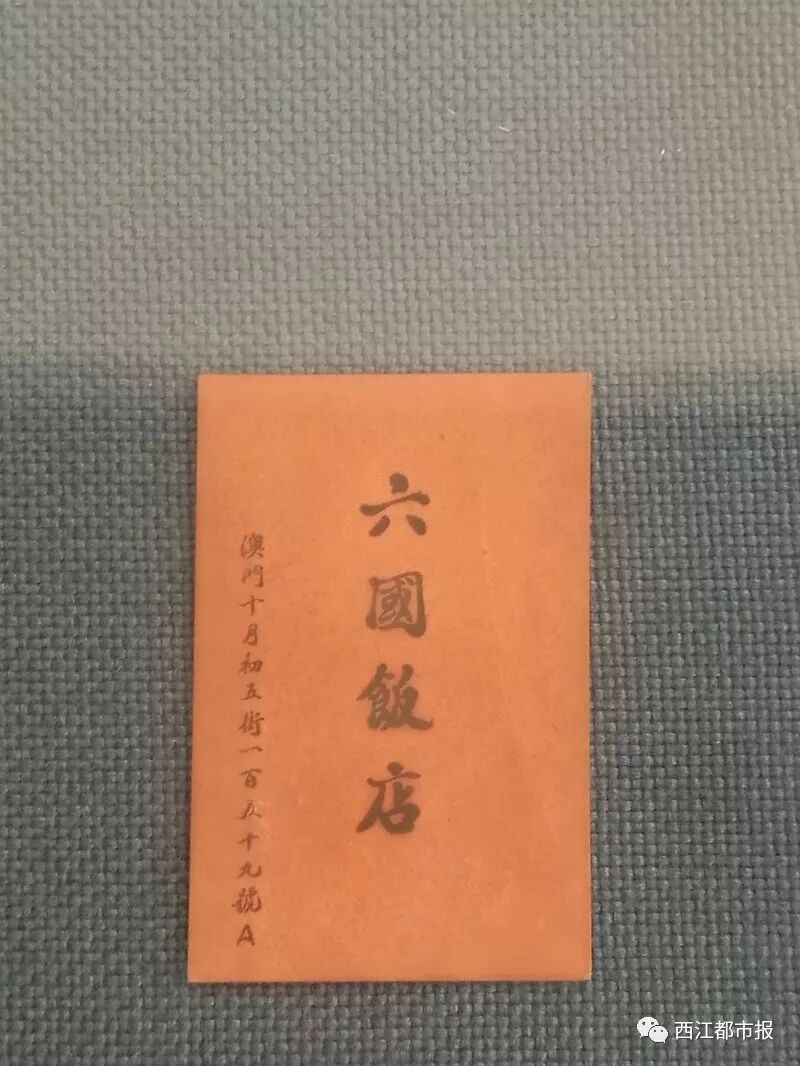 六國飯店
澳門十月初五街一百五十九號A
西江都市报